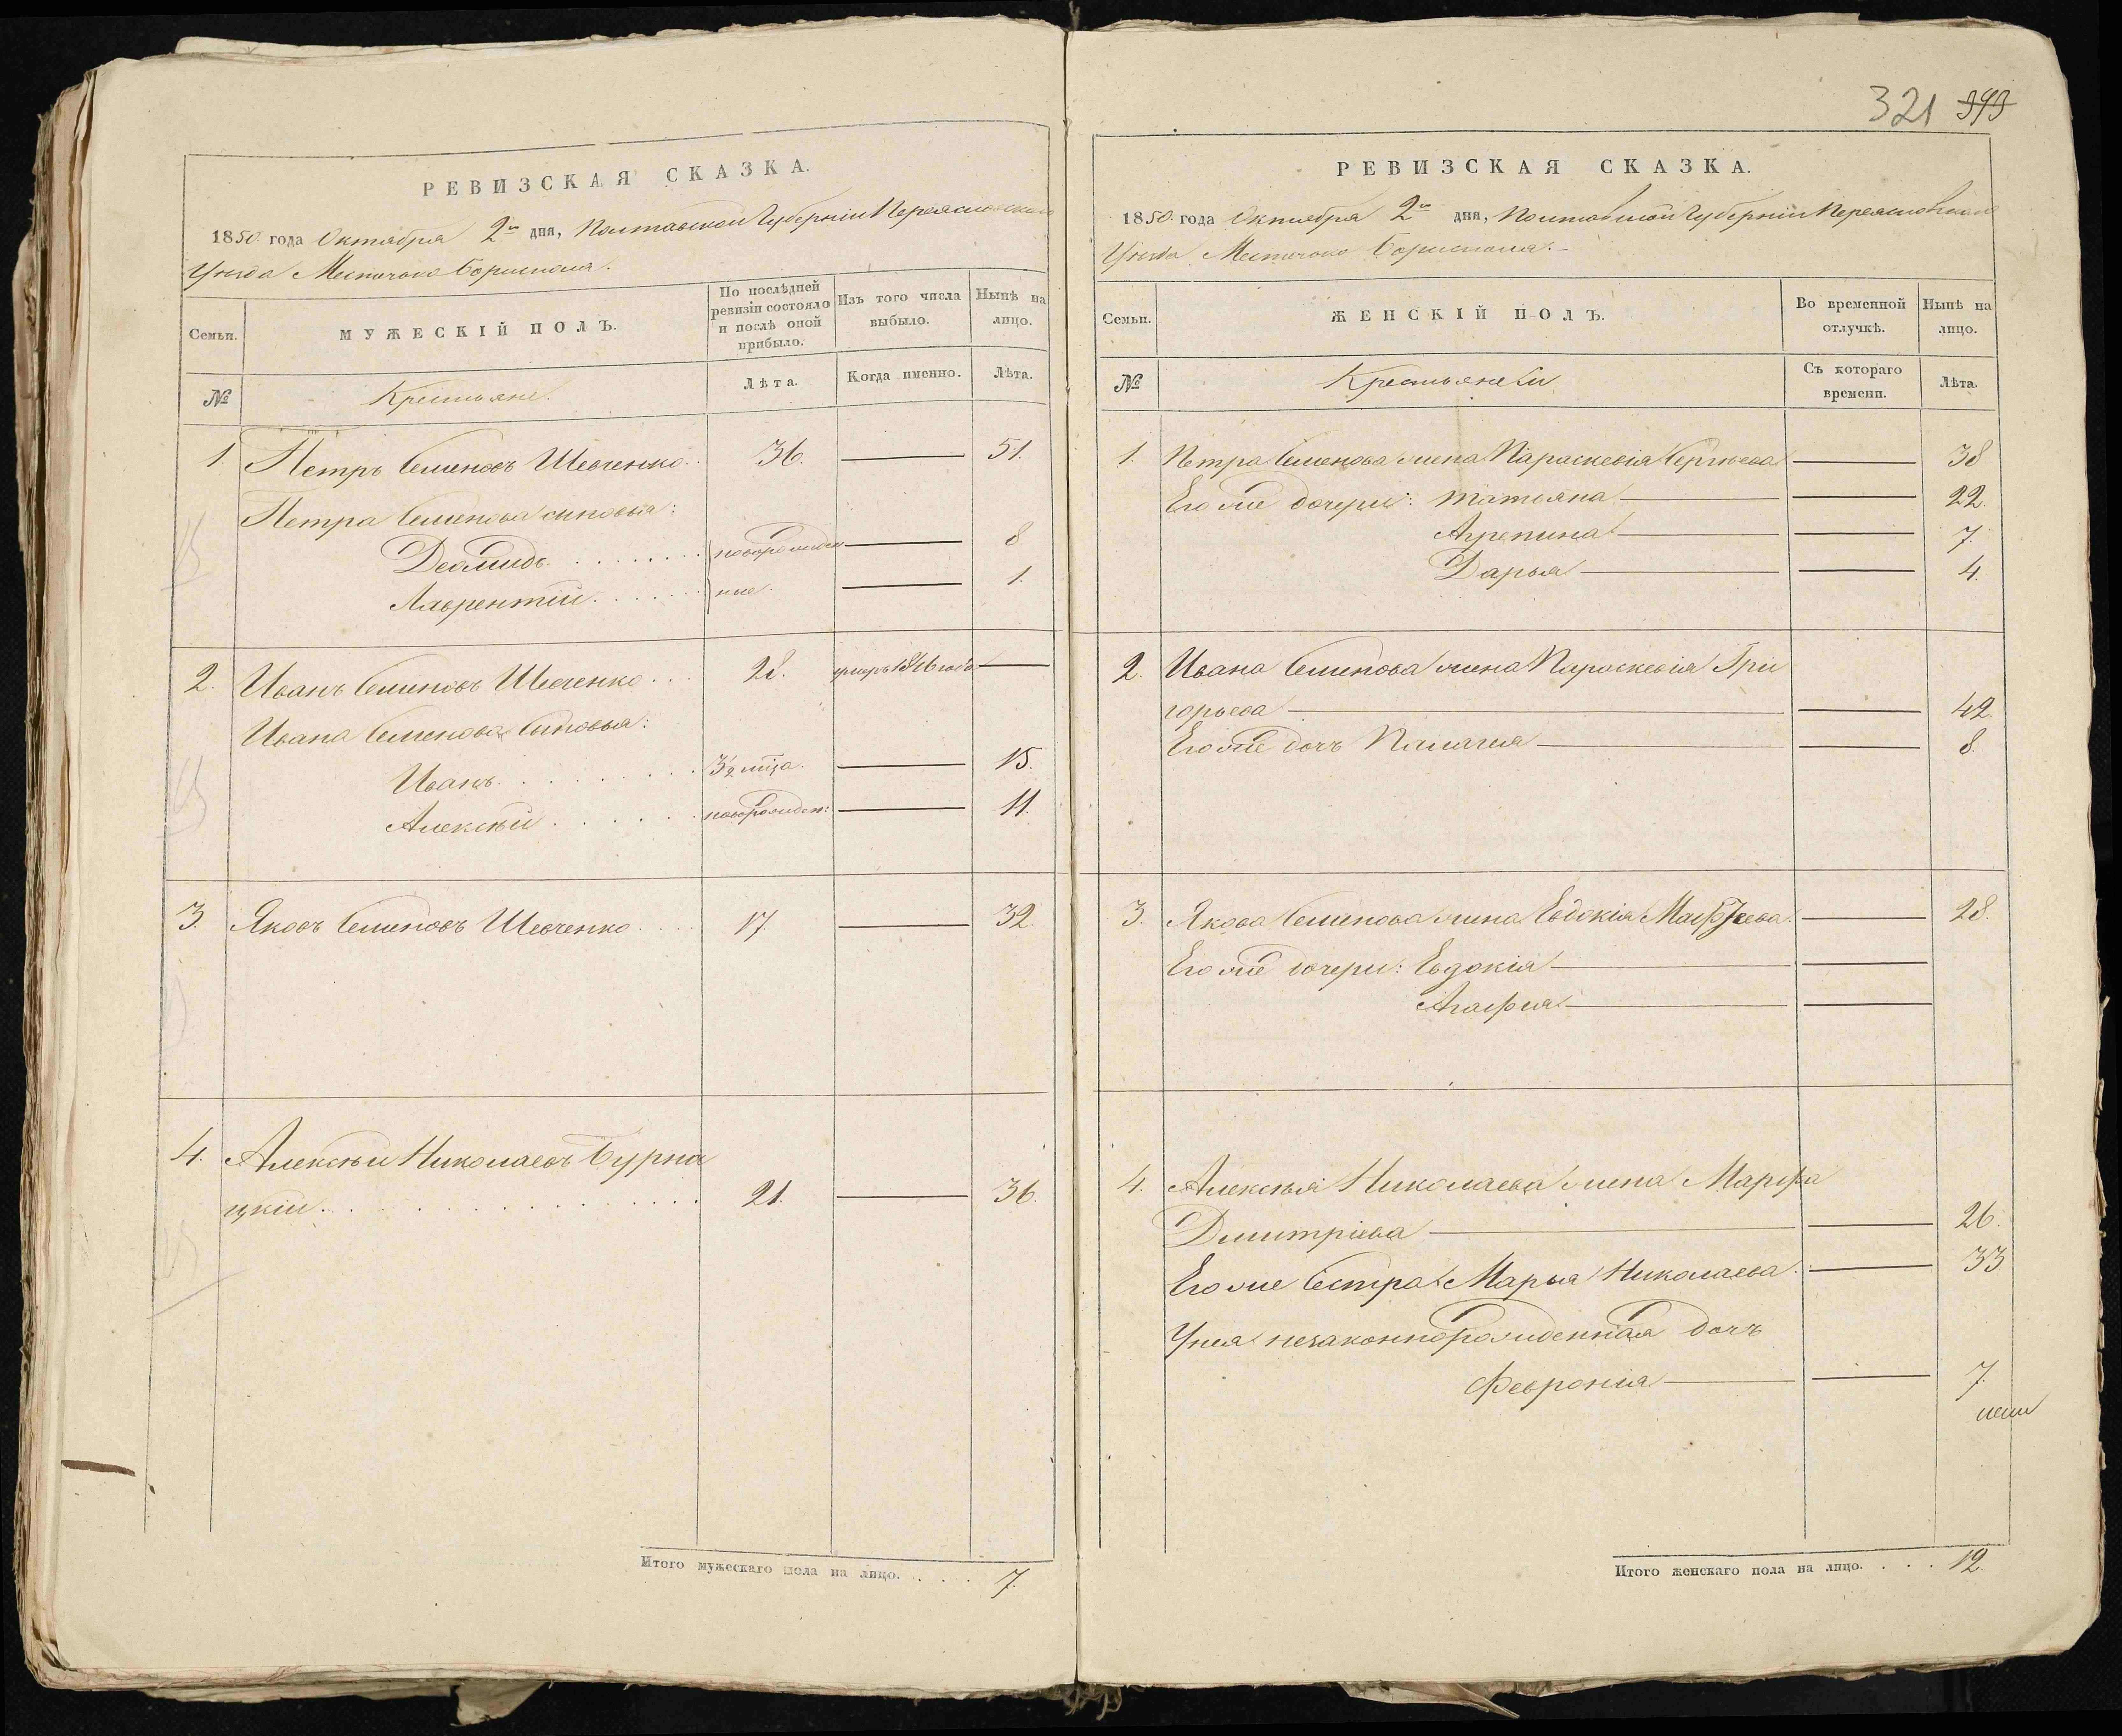 РЕВИЗСКАЯ СКАЗКА.
1850 года Октября 2го дня, Полтавской Губерніи Переяславского
Уѣзда Местечка Борисполя.
Семьи.
МУЖЕСКІЙ ПОЛЪ.
По послѣдней ревизіи состояло и послѣ оной прибыло.
Изъ того числа выбыло.
Нынѣ на лицо.
№
Крестьяне.
Лѣта.
Когда именно.
Лѣта.
1. Петръ Семеновъ Шевченко. 36. 51.
Петра Семенова сыновья:
Деомидъ. новорожден 8
Лаврентій. ные. 1.
2. Иванъ Семеновъ Шевченко 28. умеръ 1846 года
Ивана Семенова Сыновья:
Иванъ. 3½ мца. 15.
Алексѣй новорожден: 11.
3. Яковъ Семеновъ Шевченко 17. 32.
4. Алексѣй Николаевъ Бурна
цкій. 21. 36.
Итого мужескаго пола на лицо. 7.
321 393
РЕВИЗСКАЯ СКАЗКА.
1850 года Октября 2го дня, Полтавской Губерніи Переяславского
Уѣзда Местечка Борисполя.
Семьи.
ЖЕНСКІЙ ПОЛЪ.
Во временной отлучкѣ.
Нынѣ на лицо.
№
Крестьянки
Съ котораго времени.
Лѣта.
1. Петра Семенова жена Параскевія Сергѣева 38
Его же дочери: Татьяна 22.
Агрепина 7.
Дарья 4.
2. Ивана Семенова жена Параскевія Гри
горьева 42.
Его же дочь Палагея 8.
3. Якова Семенова жена Евдокія Матфѣева 28.
Его же дочери: Евдокія
Агафія
4. Алексѣя Николаева жена Марфа
Дмитріева 26.
Его же Сестра Марья Николаева 33
У нея незаконнорожденная дочь
Февронія 7.
Итого женскаго пола на лицо. 12.